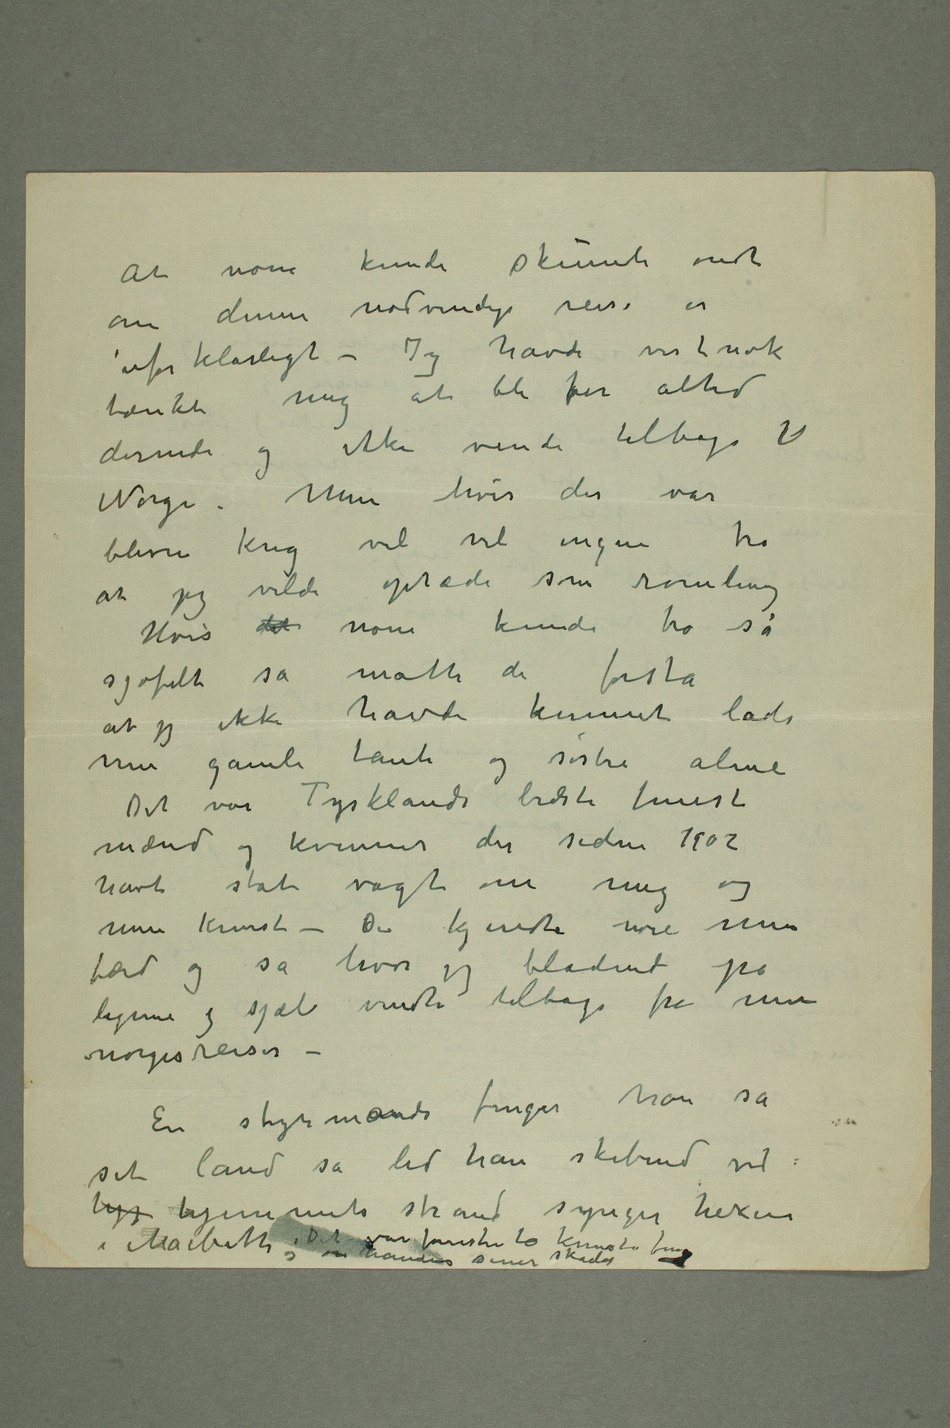 At noen kunde skumle ondt
om denne nødvendige reise er
uforklarligt – Jeg havde vistnok
tænkt mig at bli for altid
dernede og ikke vende tilbage til
Norge. Men hvis der var
bleven krig vel vil ingen tro
at jeg vilde optræde som rømling
Hvis det noen kunde tro så
sjofelt så måtte de forstå
at jeg ikke havde kunnet lade
min gamle tante og søster alene
Det var Tysklands bedste fineste
mænd og kvinner der siden 1902
havt stått vagt om mig og
min kunst – De kjendte nøie min
færd og så hvor jeg blødende på
legeme og sjæl vendte tilbage fra mine
norgesreiser –
En styrmands finger han sa
set land så led han skibbrud ved
hjemmets strand synger hexene
i Macbeth Det var venstre to knuste fing
og om håndens sener skadet